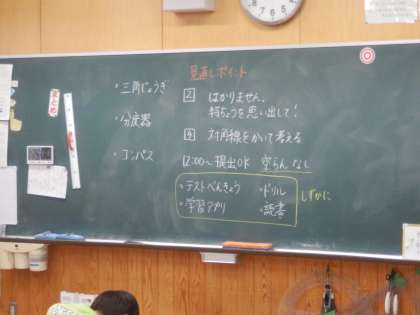 ・三角じょうぎ
・分度器
・コンパス
見直しポイント
2 はかりません。
特ちょうを思い出して!
4 対角線をかいて考える
12:00～提出OK 空らんなし
・テストべんきょう ・ドリル
・学習アプリ ・読書
しずかに
まとめ